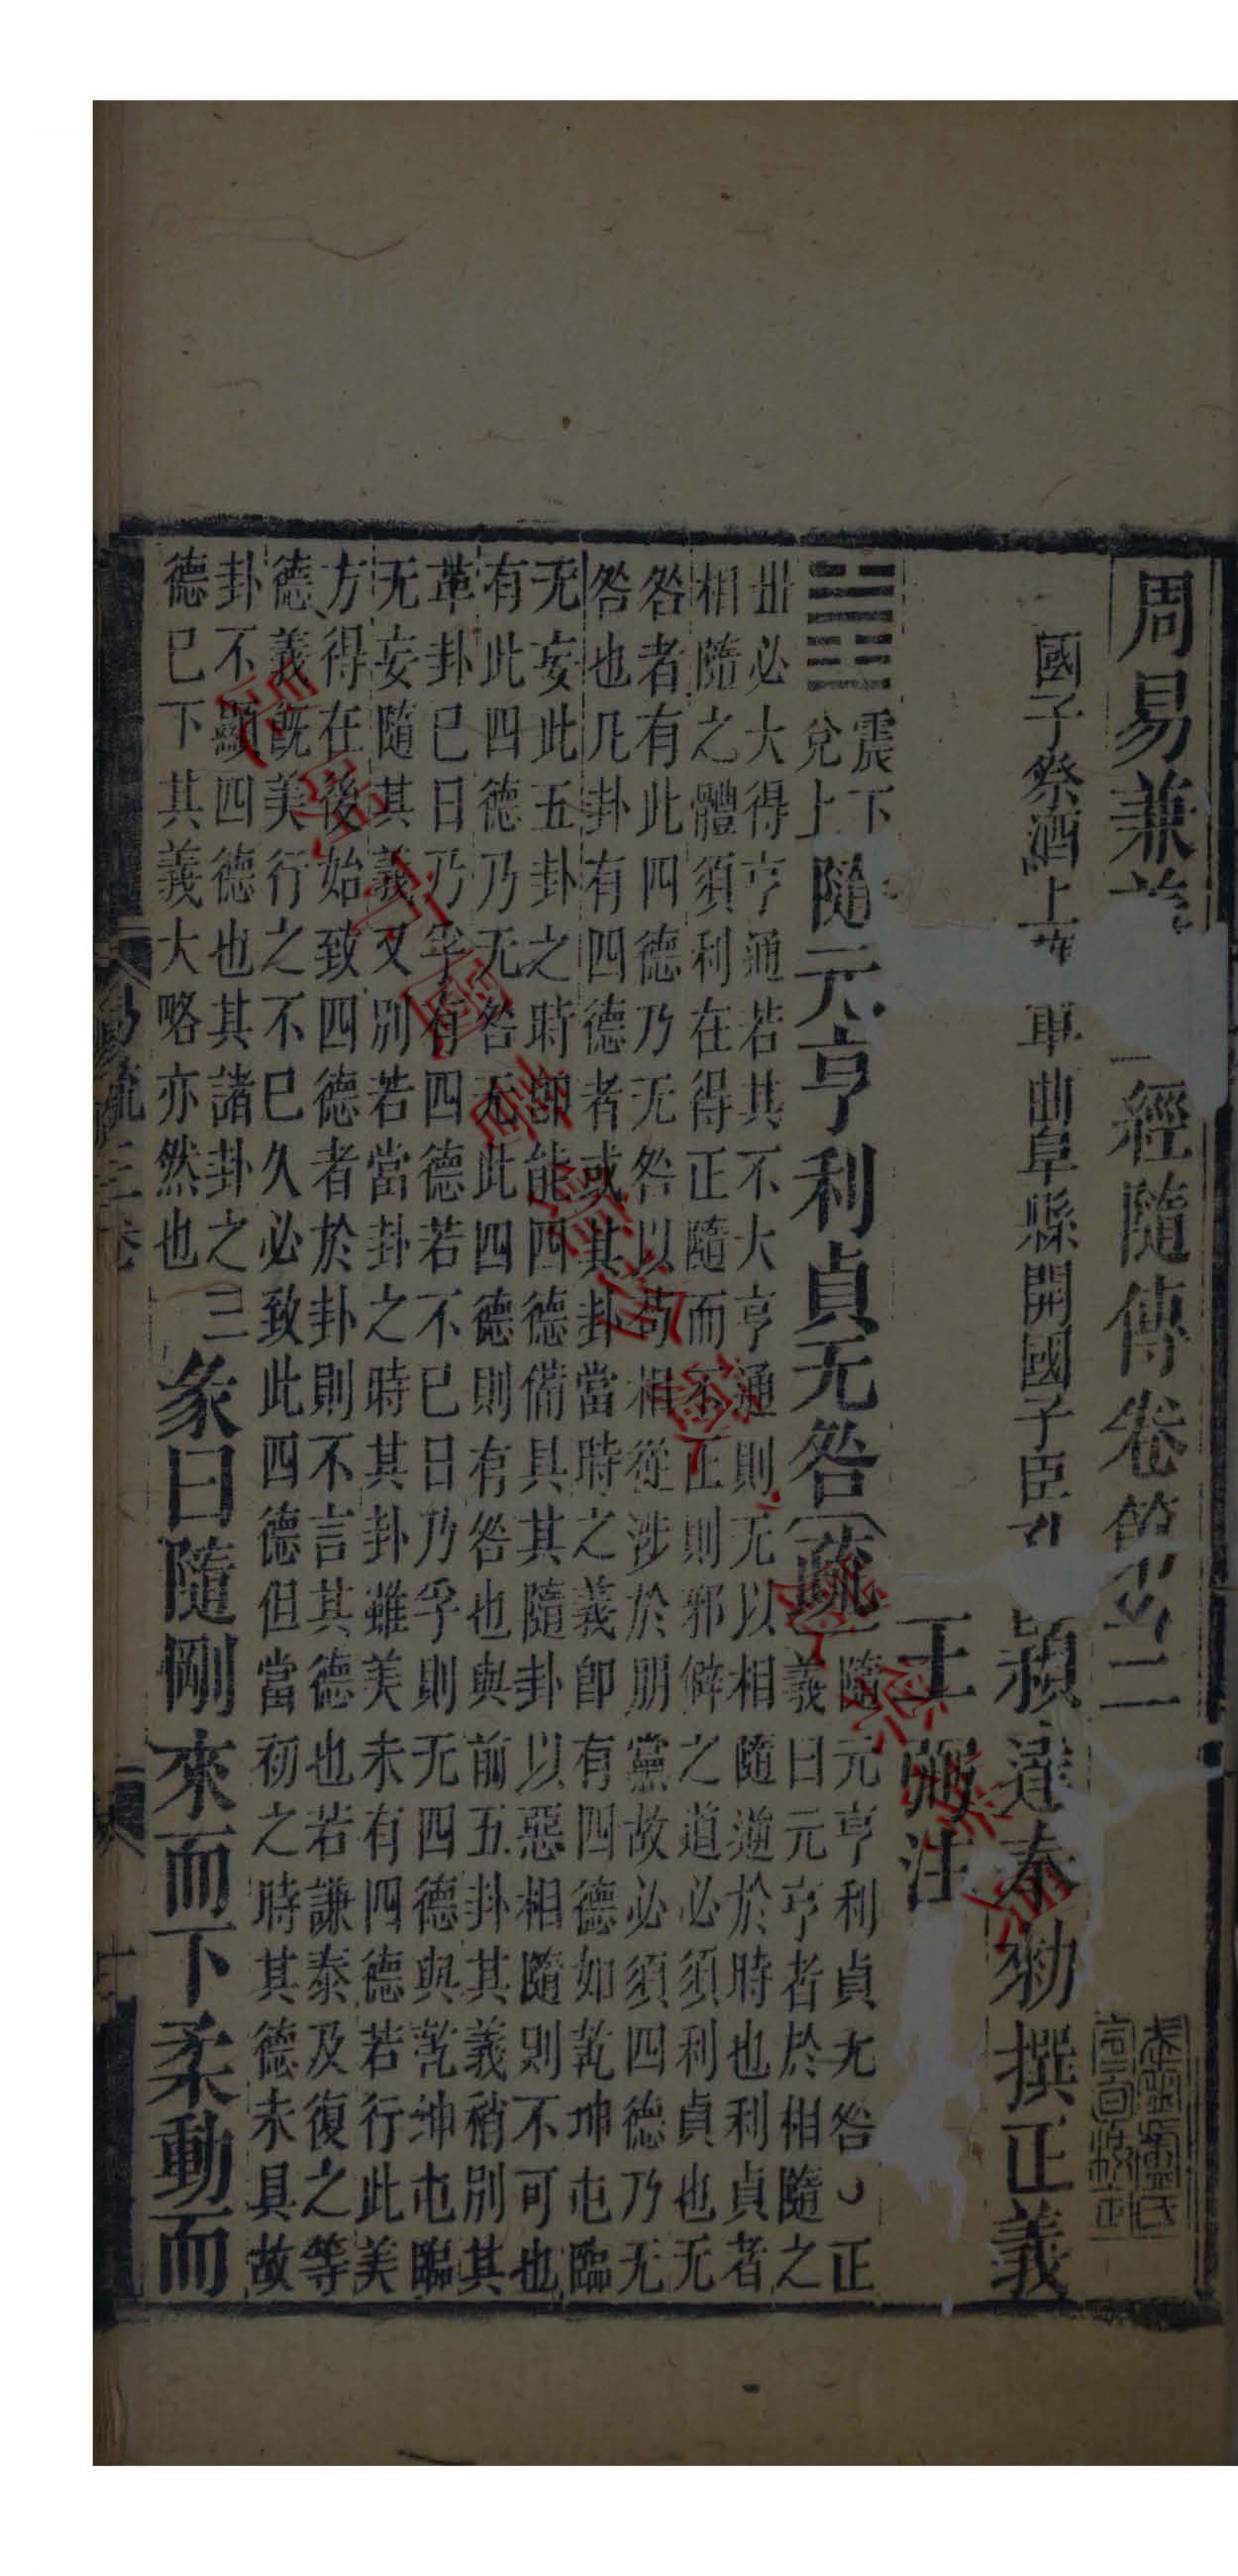 周易兼義 一經隨傳卷第二
國子祭酒上 軍曲阜縣開國子臣孔
穎達奉勑撰正義
王弼注
震下
兌上
隨元亨利貞无咎
疏
隨元亨利貞无咎 正
義曰元亨者於相隨之
丗必大得亨通若其不大亨通則无以相隨逆於時也利貞者
相隨之體須利在得正隨而不正則邪僻之道必須利貞也无
咎者有此四德乃无咎以苟相從涉於朋黨故必須四德乃无
咎也凡卦有四德者或其卦當時之義即有四德如乾坤屯臨
无妄此五卦之時即能四德備具其隨卦以惡相隨則不可也
有此四德乃无咎无此四德則有咎也與前五卦其義稍別其
革卦已日乃孚有四德若不已日乃孚則无四德與乾坤屯臨
无妄隨其義又別若當卦之時其卦雖美未有四德若行此美
方得在後始致四德者於卦則不言其德也若謙泰及復之等
德義既美行之不已久必致此四德但當初之時其德未具故
卦不顯四德也其諸卦之三
德已下其義大略亦然也
彖曰隨剛來而下柔動而